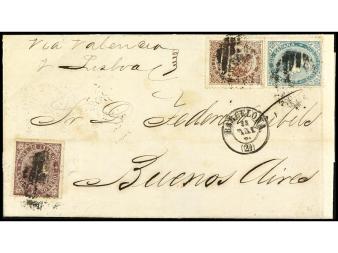 Via Valencia
y Lisboa
Sr. D. Federico
BARCELONA
(24)
Buenos Aires